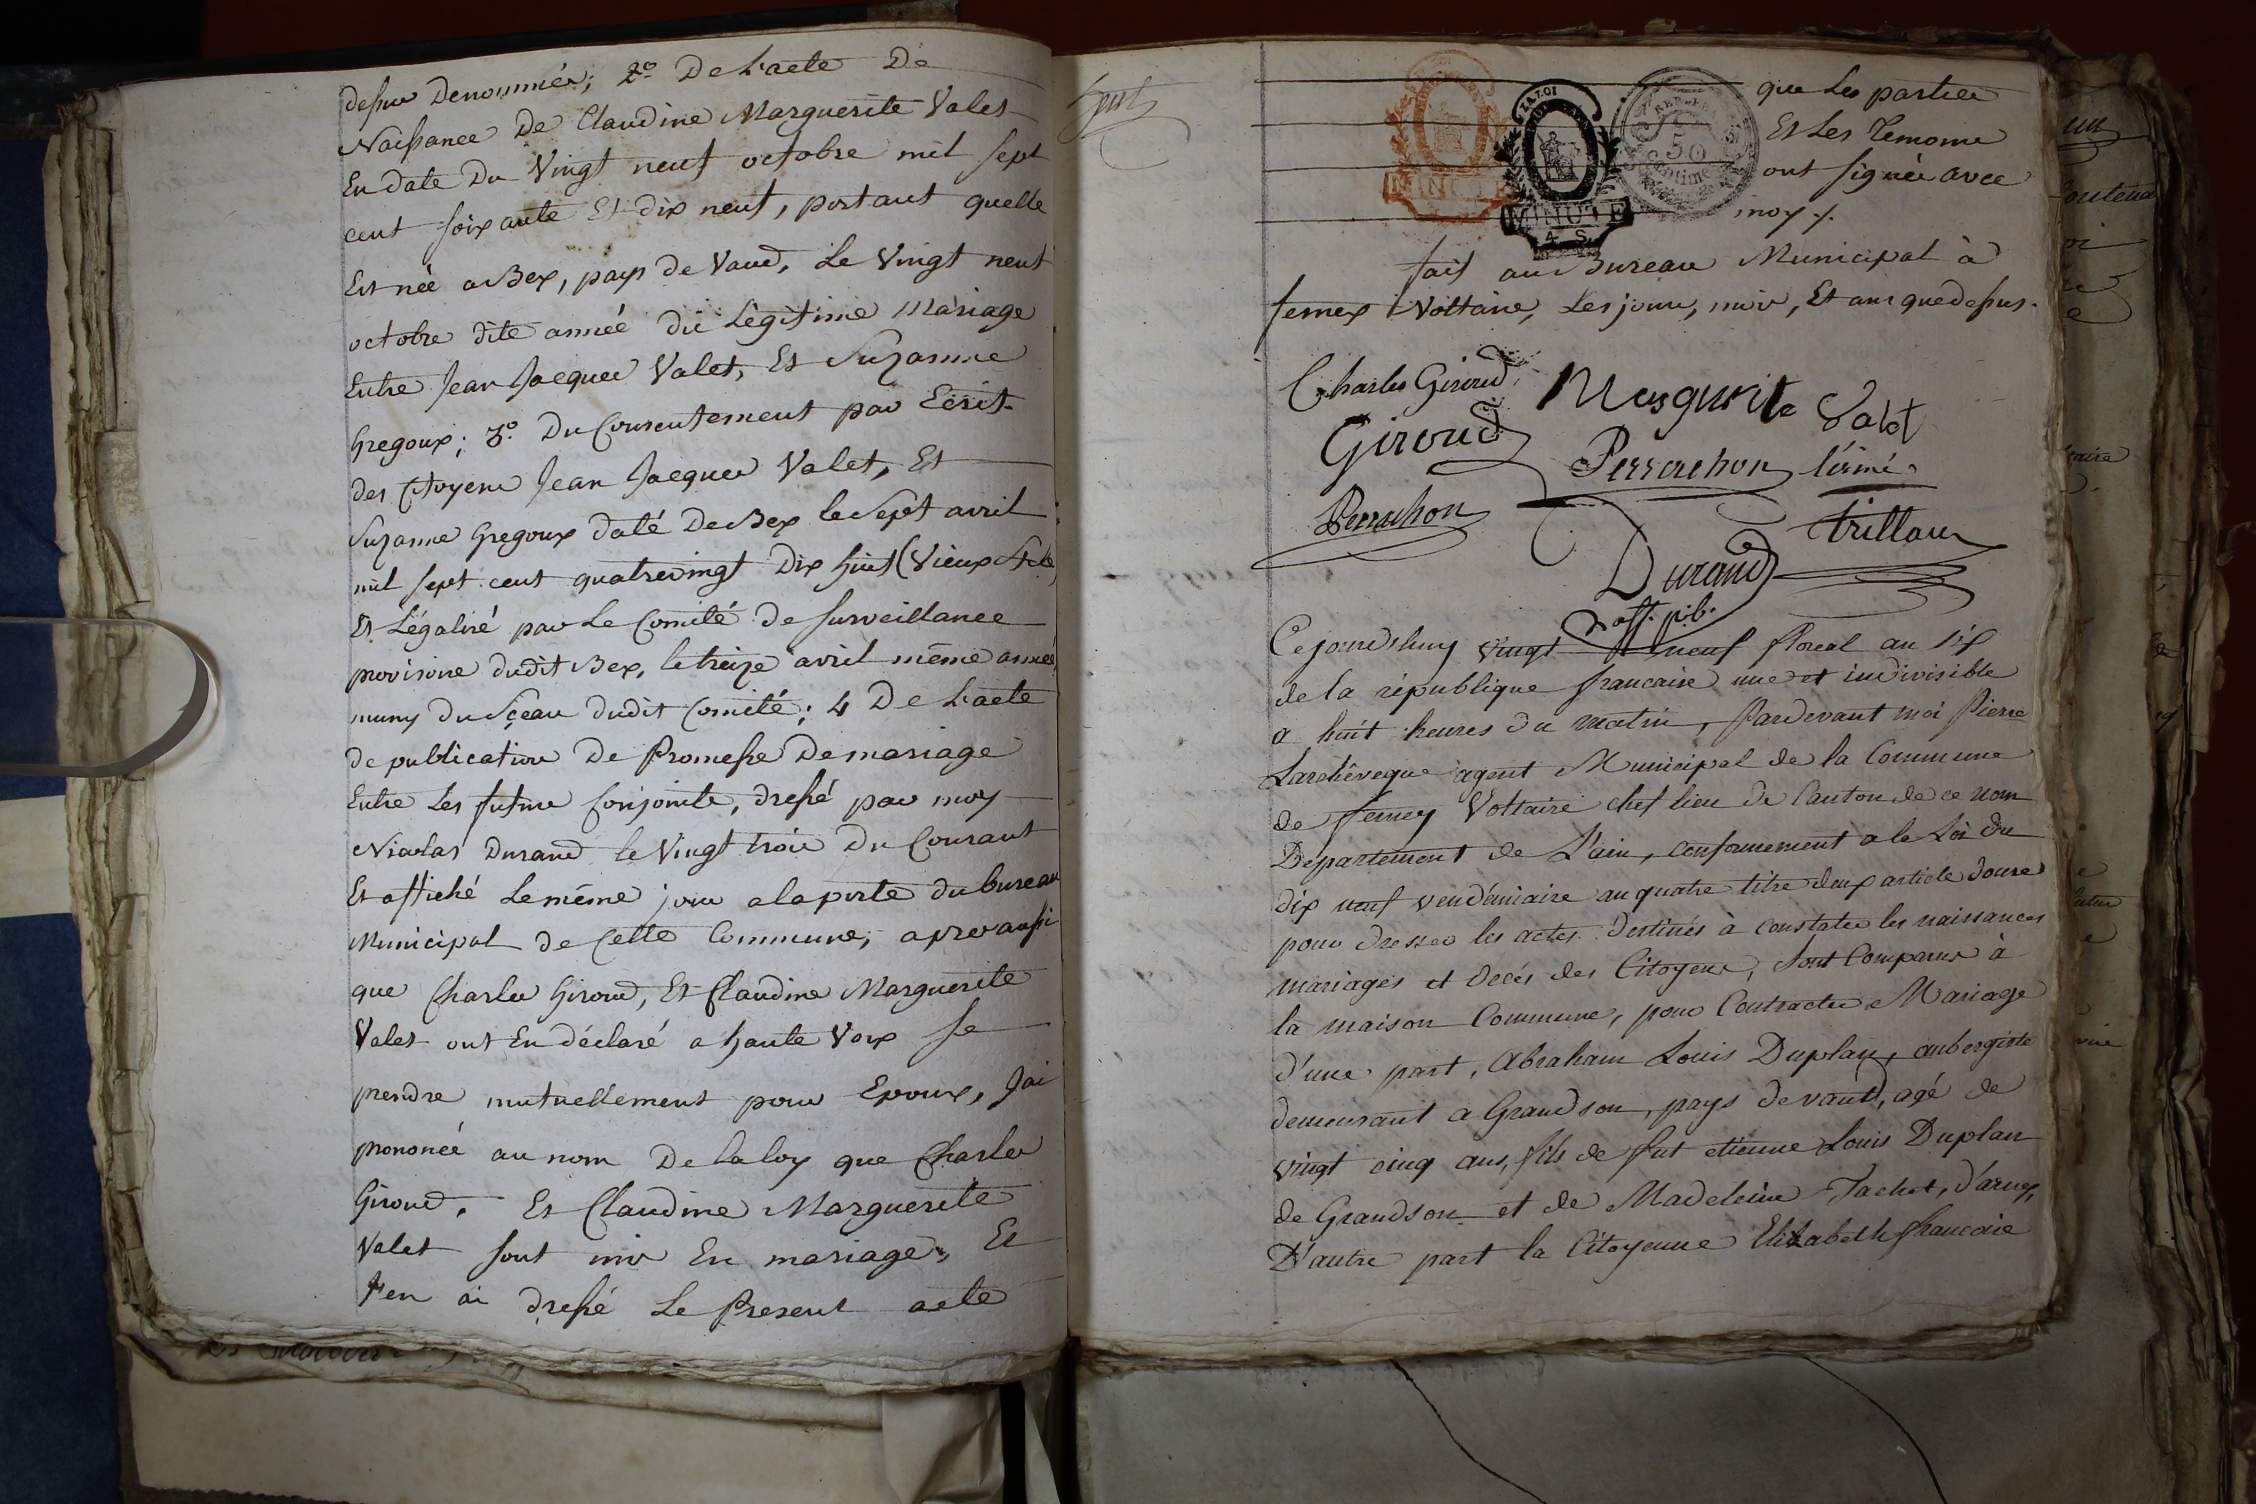 dessus Denommés; 2º De L'acte De
Naissance De Claudine Marguerite Valet
En date Du Vingt neuf octobre mil sept
cent soixante Et dix neuf, portant quelle
Est née a Bex, pays de Vaud, Le Vingt neuf
octobre dite année du Légitime Mariage
Entre Jean Jacques Valet, Et Suzanne
Gregoux; 3º. Du Consentement par Ecrit
des Citoyens Jean Jacques Valet, Et
Suzanne Gregoux daté De Bex le Sept avril
mil sept cent quatrevingt Dix huit (Vieux Stile)
Et Légalisé par Le Comité de surveillance
provisoire dudit Bex, le treize avril même année
muny du Sçeau dudit Comité; 4 De L'acte
de publication De Promesse De mariage
Entre Les futurs Conjoints, dressé par moy
Nicolas Durand le Vingt trois Du Courant
Et affiché Le même jour a la porte du bureau
Municipal de Cette Commune, apres aussi
que Charles Giroud, Et Claudine Marguerite
Valet ont En déclaré a haute Voix se
prendre mutuellement pour Epoux, J'ai
prononcé au nom De la loy que Charles
Giroud, Et Claudine Marguerite
Valet sont unis En mariage, Et
J'en ai dressé Le Present acte
que Les parties
Et Les Temoins
ont signés avec
moy ./.
LA LOI
MINUTE
MINUTE
4 S.
REP. FRA.
50
Centimes
fait au Bureau Municipal à
fernex Voltaire, Les jours, mois, Et ans que dessus.
Charles Giroud
Marguerite Valet
Giroud
Perrachon l'aimé
Perrachon
trillaux
Durand
off. p.b.
Cejourdhuy vingt neuf floreal an six
de la république francaise une et indivisible
a huit heures du matin, Pardevant moi Pierre
Larchêveque agent Municipal de la Commune
de ferney Voltaire chef lieu de Canton de ce nom
Departement de L'ain, conformement a la Loi du
dix neuf vendémiaire an quatre titre deux article douze
pour dresser les actes destinés à constater les naissances
mariages et decés des Citoyens, sont Comparus à
la maison Commune, pour Contracter Mariage
d'une part, Abraham Louis Duplan, aubergiste
demeurant a Grandson, pays de vaud, agé de
vingt cinq ans, fils de fut etienne Louis Duplan
de Grandson et de Madeleine Jachet, d'arnex,
D'autre part la Citoyenne Elizabeth francoise